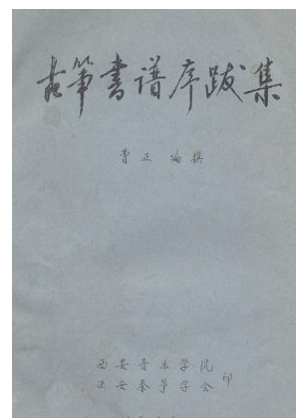 古筝書谱序跋集
曹正 编撰
西安音乐学院
西安秦筝学会 印